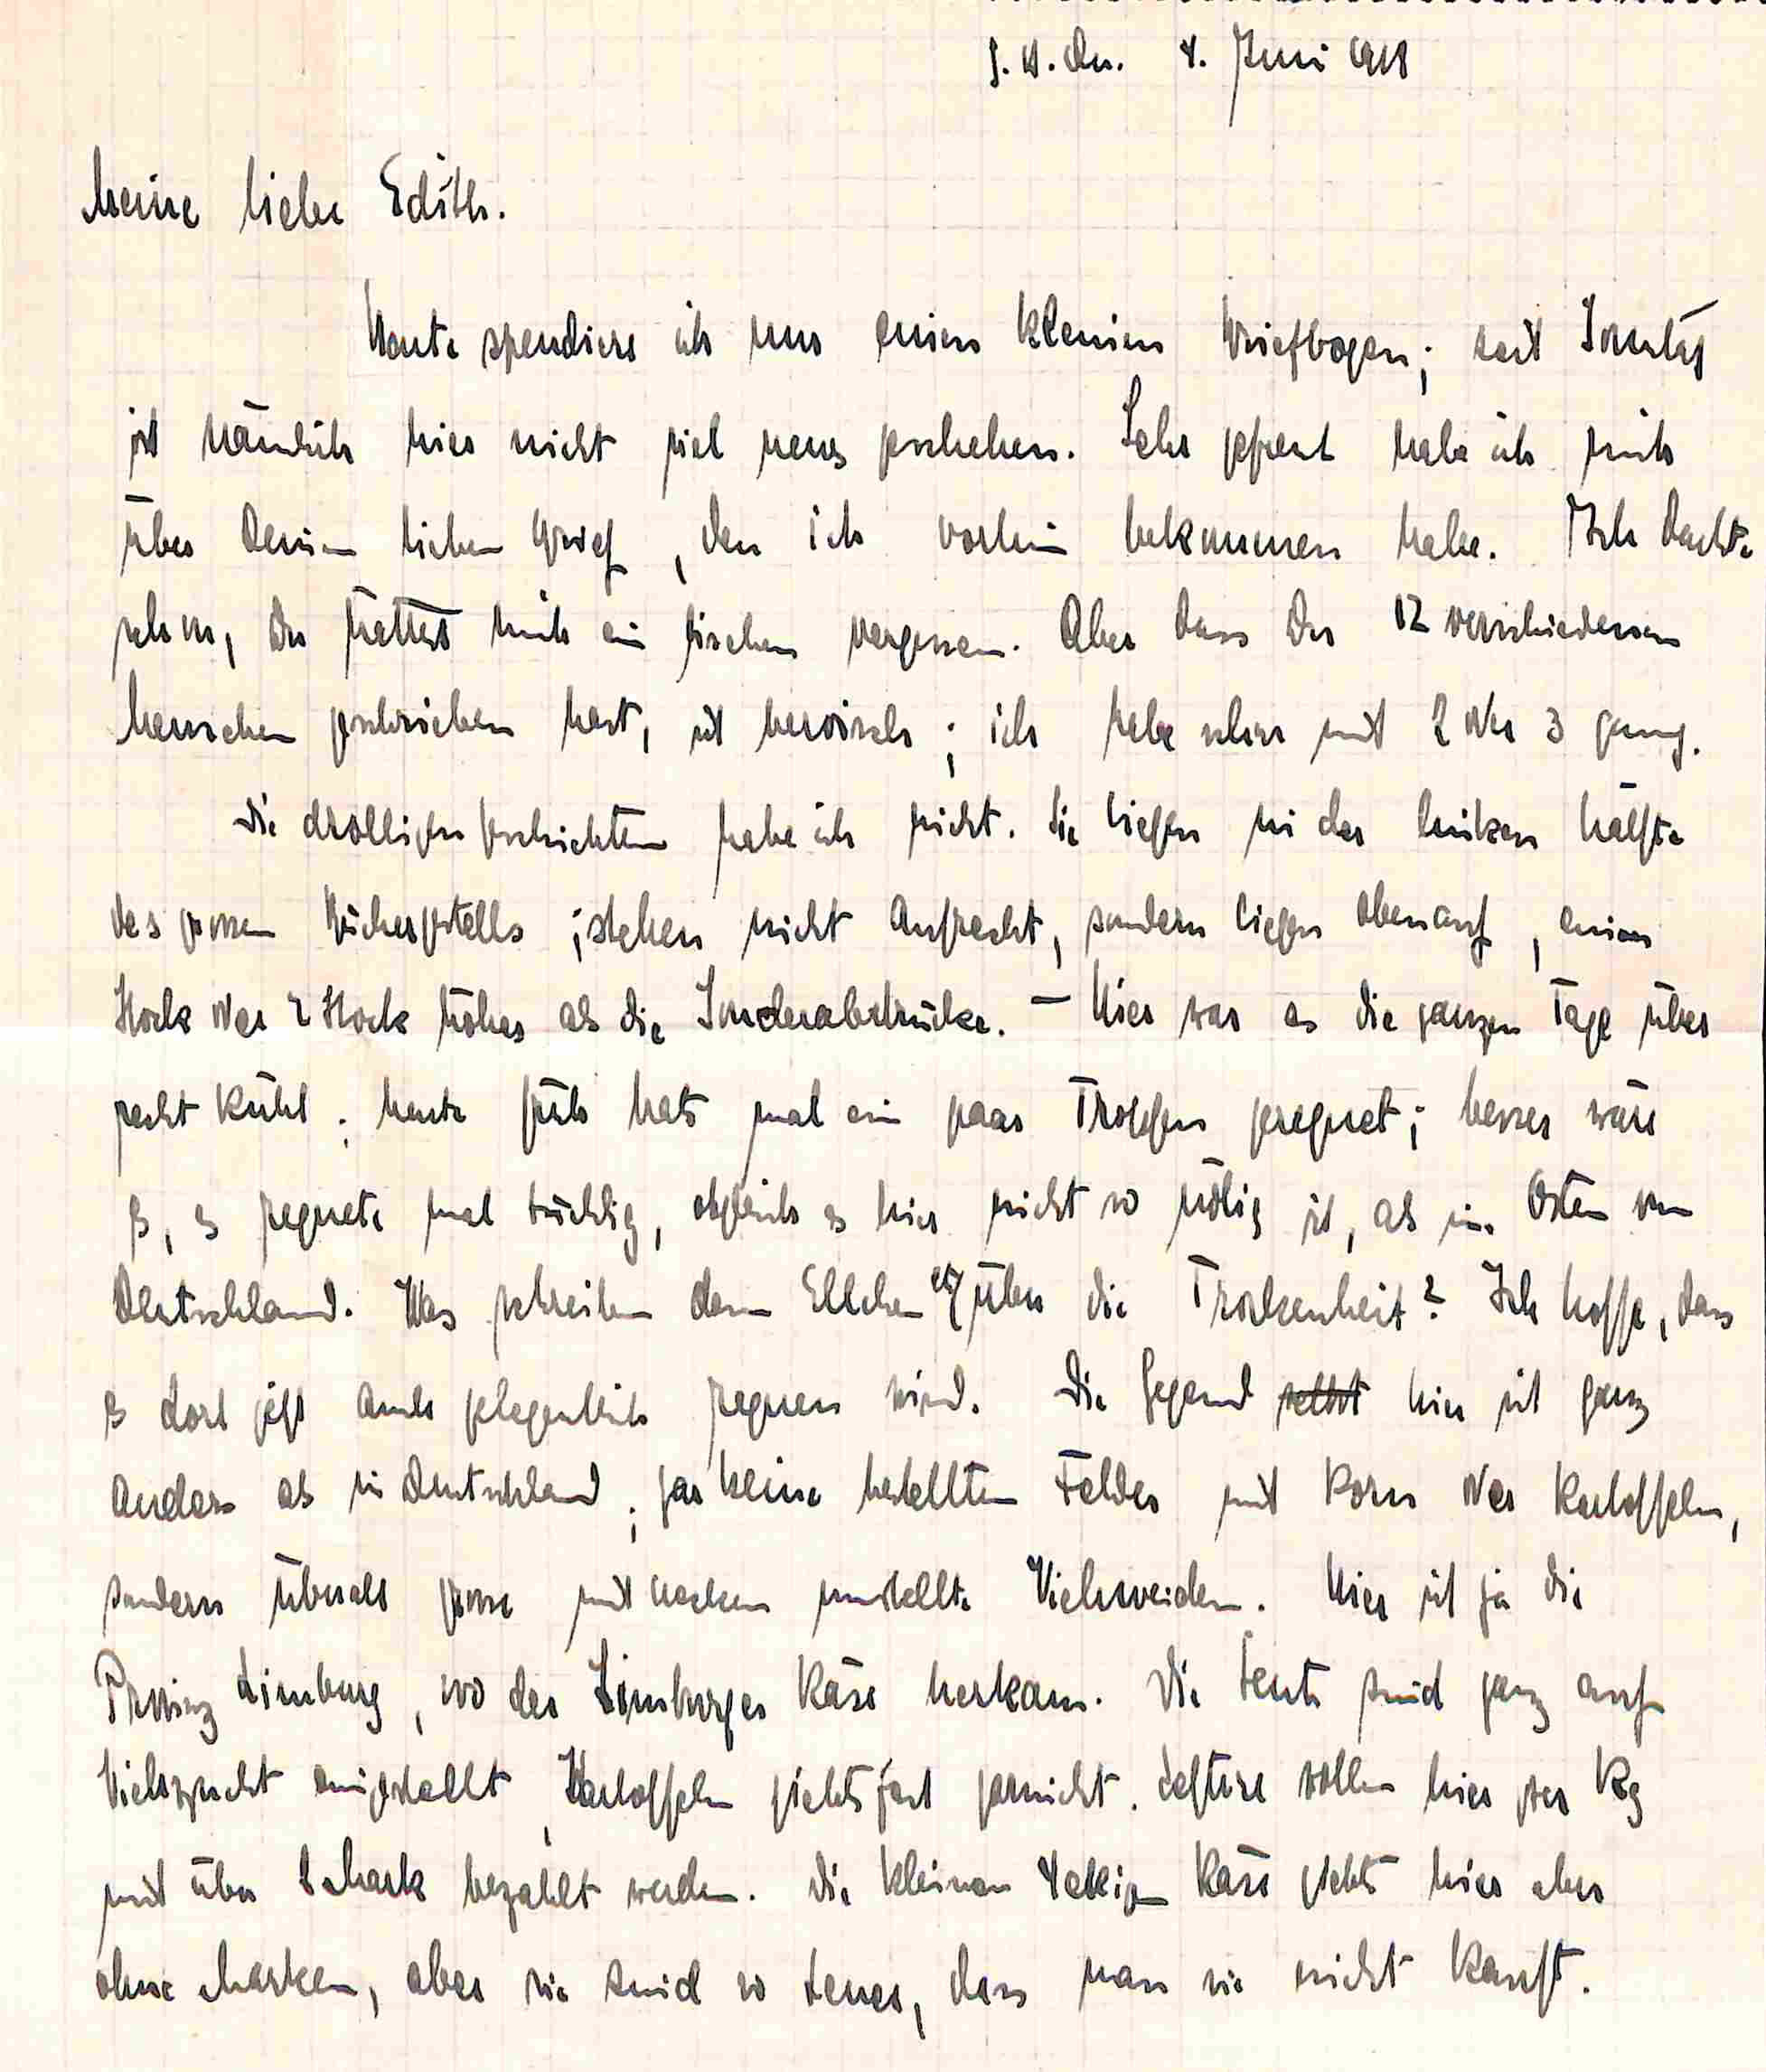 4. Juni 1918
Meine liebe Edith.
Heute spendiere ich nur einen kleinen Briefbogen; seit Sonntag
ist nämlich hier nicht viel neues geschehen. Sehr gefreut habe ich mich
über Deinen lieben Brief, den ich vorhin bekommen habe. Ich dachte
schon, Du hättest mich ein bischen vergessen. Aber dass Du 12 verschiedenen
Menschen geschrieben hast, ist heroisch; ich habe schon mit 2 oder 3 genug.
Die drolligen Geschichten habe ich nicht. Sie liegen in der linken Hälfte
des grossen Büchergestells; stehen nicht aufrecht, sondern liegen obenauf, einen
Stock oder 2 Stock höher als die Sonderabdrücke. – Hier war es die ganzen Tage über
recht kühl; heute früh hats mal ein paar Tropfen geregnet; besser wäre
es, es regnete mal tüchtig, obgleich es hier nicht so nötig ist, als im Osten von
Deutschland. Was schreiben denn Ellchen etz über die Trockenheit? Ich hoffe, dass
es dort jetzt auch gelegentlich regnen wird. Die Gegend selbst hier ist ganz
anders als in Deutschland; gar keine bestellten Felder mit Korn oder Kartoffeln,
sondern überall grosse mit Hecken umstellte Viehweiden. Hier ist ja die
Provinz Limburg, wo der Limburger Käse herkam. Die Leute sind ganz auf
Viehzucht eingestellt, Kartoffeln giebts fast garnicht. Letztere sollen hier per Kg
mit über 2 Mark bezahlt werden. Die kleinen 4eckigen Käse giebts hier aber
ohne Marken, aber sie sind so teuer, dass man sie nicht kauft.